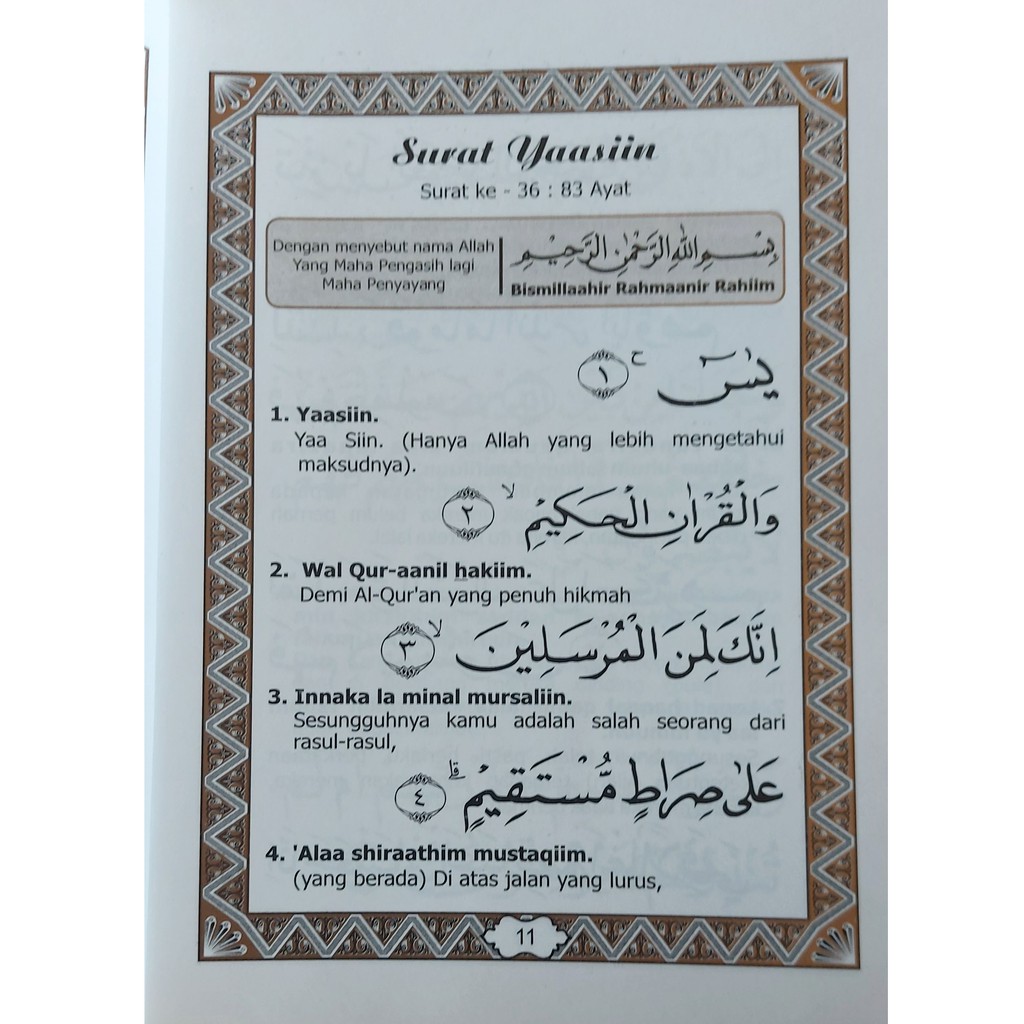 Surat Yaasiin
Surat ke - 36 : 83 Ayat
Dengan menyebut nama Allah
Yang Maha Pengasih lagi
Maha Penyayang
بِسْــمِ اللّٰهِ الرَّحْمٰنِ الرَّحِيْـمِ
Bismillaahir Rahmaanir Rahiim
يٰسۤ ۚ ١
1. Yaasiin.
Yaa Siin. (Hanya Allah yang lebih mengetahui
maksudnya).
وَالْقُرْاٰنِ الْحَكِيْمِ ۙ ٢
2. Wal Qur-aanil hakiim.
Demi Al-Qur'an yang penuh hikmah
اِنَّكَ لَمِنَ الْمُرْسَلِيْنَ ۙ ٣
3. Innaka la minal mursaliin.
Sesungguhnya kamu adalah salah seorang dari
rasul-rasul,
عَلٰى صِرَاطٍ مُّسْتَقِيْمٍ ۗ ٤
4. 'Alaa shiraathim mustaqiim.
(yang berada) Di atas jalan yang lurus,
11